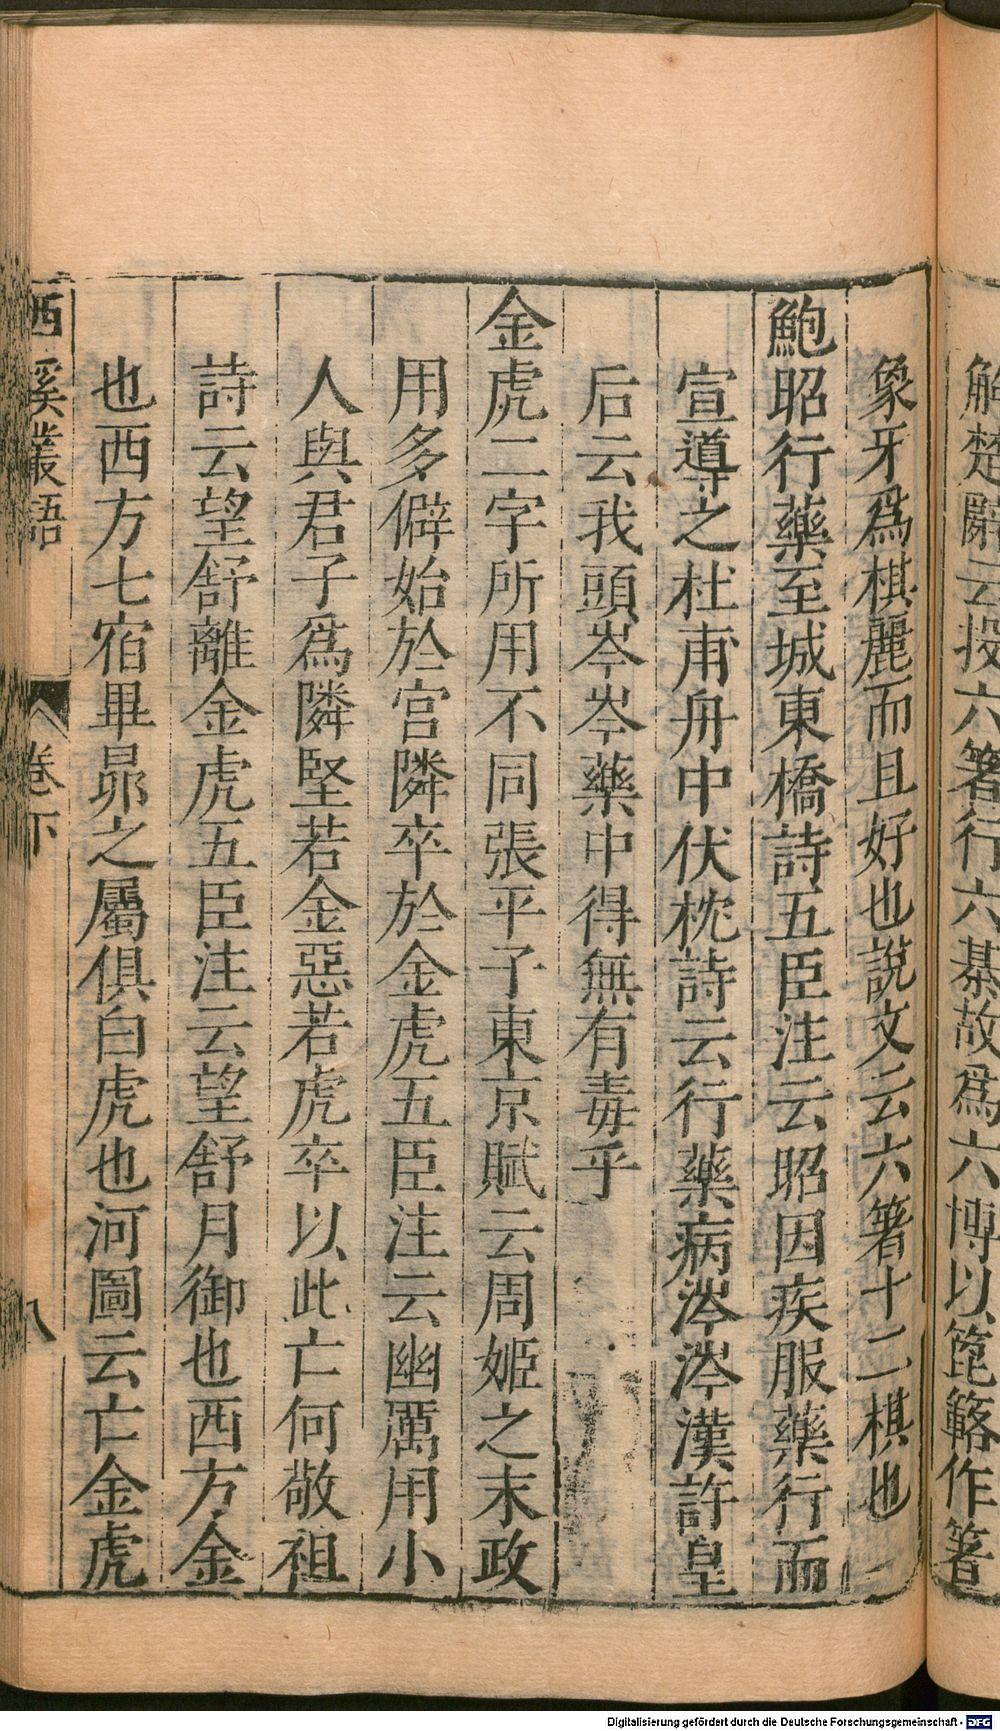 解楚辭云投六箸行六棊故爲六博以箆簬作箸
象牙爲棋麗而且好也說文云六箸十二棋也
鮑昭行藥至城東橋詩五臣注云昭因疾服藥行而
宣導之杜甫舟中伏枕詩云行藥病涔涔漢許皇
后云我頭岑岑藥中得無有毒乎
金虎二字所用不同張平子東京賦云周姬之末政
用多僻始於宮隣卒於金虎五臣注云幽厲用小
人與君子爲隣堅若金惡若虎卒以此亡何敬祖
詩云望舒離金虎五臣注云望舒月御也西方金
也西方七宿畢昴之屬俱白虎也河圖云亡金虎
西溪叢語 卷下 八
Digitalisierung gefördert durch die Deutsche Forschungsgemeinschaft - DFG